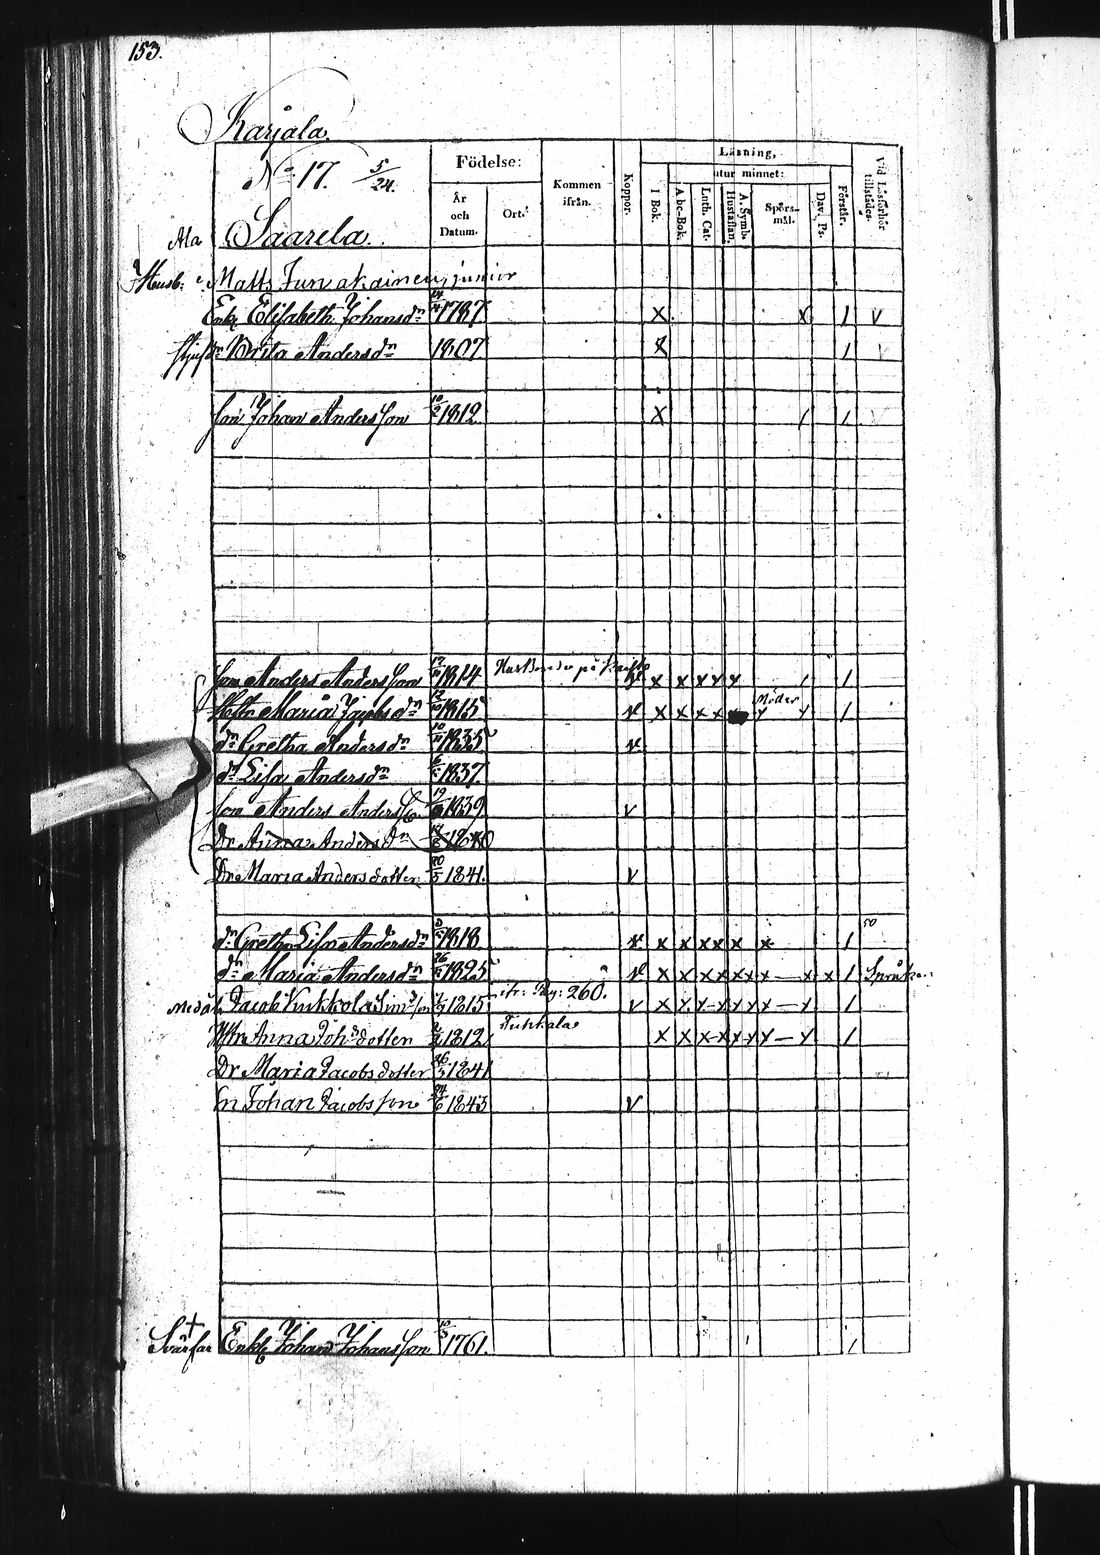 153.
Karjala.
No 17. 5/24.
Födelse:
År och Datum.
Ort.
Kommen ifrån.
Koppor.
Läsning,
I Bok.
utur minnet:
A bc-Bok.
Luth. Cat.
A. Symb. Hustaflan.
Spörs-mål.
Dav. Ps.
Förstår.
Vid Läsförhör tillstädes.
Ala Saarela.
Husb: Matts junior
Enk Elisabeth Johansdn 1787 x x 1 v
Brita Andersdn 1807 x 1 v
Son Johan Andersson 1812 x 1 v
Son Anders Andersson 1814 x x x x x 1
Hstr Maria Jacobsdn 12/10 1815 v x x x x Moder 1
dn Gretha Andersdn 1835 v
dn Lisa Andersdn 1837
Son Anders Anders 19 1839 v
Dr Anna Andersdn 1840
Dr Maria Andersdotter 20/5 1841 v
dn Gretha Lisa Andersdn 1818 v x x x x x x 1 50
dn Maria Andersdn 26 1825 v x x x x x x x — x x 1
Jacob Kukkola Simsson 1815 ifr: Pag: 260. v x x x x x x x — x 1
Hstr Anna Johsdotter 1812 x x x x x x x — x 1
Dr Maria Jacobsdotter 26/5 1841
Sn Johan Jacobsson 24/6 1843 v
Svärfar Enkl Johan Johansson 10/3 1761. 1